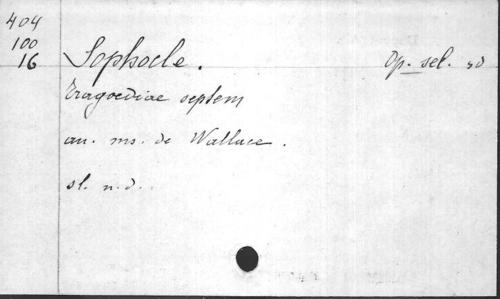 404
100
16
Sophocle. Op. sel.
Tragoediae septem
an. ms. de Wallace.
sl. n.d.